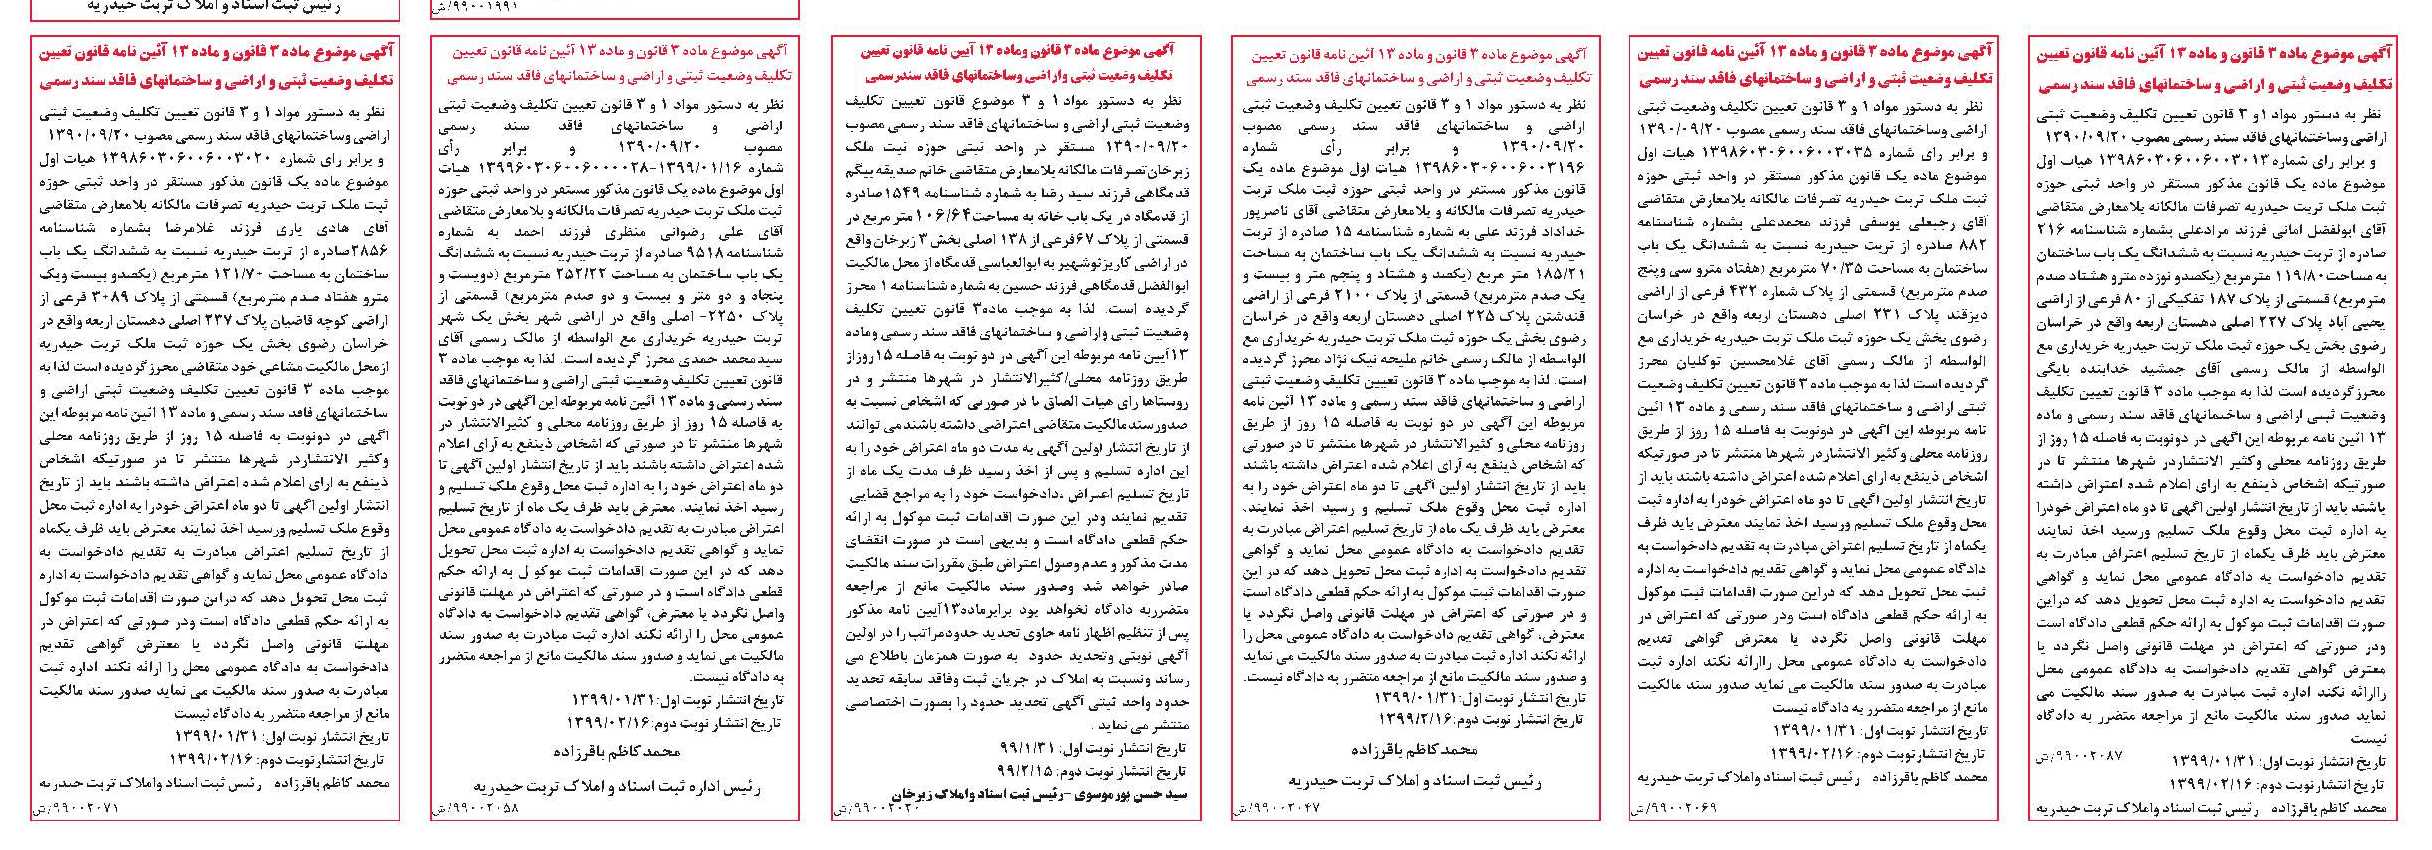 رئیس ثبت اسناد و املاک تربت حیدریه
۹۹۰۰۱۹۹۱/ش
آگهی موضوع ماده ۳ قانون و ماده ۱۳ آئین نامه قانون تعیین
تکلیف وضعیت ثبتی و اراضی و ساختمانهای فاقد سند رسمی
نظر به دستور مواد ۱و ۳ قانون تعیین تکلیف وضعیت ثبتی
اراضی وساختمانهای فاقد سند رسمی مصوب ۱۳۹۰/۰۹/۲۰
و برابر رای شماره ۱۳۹۸۶۰۳۰۶۰۰۶۰۰۳۰۱۳ هیات اول
موضوع ماده یک قانون مذکور مستقر در واحد ثبتی حوزه
ثبت ملک تربت حیدریه تصرفات مالکانه بلامعارض متقاضی
آقای ابوالفضل امانی فرزند مرادعلی بشماره شناسنامه ۲۱۶
صادره از تربت حیدریه نسبت به ششدانگ یک باب ساختمان
به مساحت۱۱۹/۸۰ مترمربع (یکصدو نوزده مترو هشتاد صدم
مترمربع) قسمتی از پلاک ۱۸۷ تفکیکی از ۸۰ فرعی از اراضی
یحیی آباد پلاک ۲۲۷ اصلی دهستان اربعه واقع در خراسان
رضوی بخش یک حوزه ثبت ملک تربت حیدریه خریداری مع
الواسطه از مالک رسمی آقای جمشید خدابنده بایگی
محرزگردیده است لذا به موجب ماده ۳ قانون تعیین تکلیف
وضعیت ثبتی اراضی و ساختمانهای فاقد سند رسمی و ماده
۱۳ ائین نامه مربوطه این آگهی در دونوبت به فاصله ۱۵ روز از
طریق روزنامه محلی وکثیر الانتشاردر شهرها منتشر تا در
صورتیکه اشخاص ذینفع به ارای اعلام شده اعتراض داشته
باشند باید از تاریخ انتشار اولین آگهی تا دو ماه اعتراض خودرا
به اداره ثبت محل وقوع ملک تسلیم ورسید اخذ نمایند
معترض باید ظرف یکماه از تاریخ تسلیم اعتراض مبادرت به
تقدیم دادخواست به دادگاه عمومی محل نماید و گواهی
تقدیم دادخواست به اداره ثبت محل تحویل دهد که دراین
صورت اقدامات ثبت موکول به ارائه حکم قطعی دادگاه است
ودر صورتی که اعتراض در مهلت قانونی واصل نگردد یا
معترض گواهی تقدیم دادخواست به دادگاه عمومی محل
راارائه نکند اداره ثبت مبادرت به صدور سند مالکیت می
نماید صدور سند مالکیت مانع از مراجعه متضرر به دادگاه
نیست
تاریخ انتشار نوبت اول: ۱۳۹۹/۰۱/۳۱
۹۹۰۰۲۰۸۷/ش
تاریخ انتشار نوبت دوم: ۱۳۹۹/۰۲/۱۶
محمد کاظم باقرزاده رئیس ثبت اسناد واملاک تربت حیدریه
آگهی موضوع ماده ۳ قانون و ماده ۱۳ آئین نامه قانون تعیین
تکلیف وضعیت ثبتی و اراضی و ساختمانهای فاقد سند رسمی
نظر به دستور مواد ۱ و ۳ قانون تعیین تکلیف وضعیت ثبتی
اراضی وساختمانهای فاقد سند رسمی مصوب ۱۳۹۰/۰۹/۲۰
و برابر رای شماره ۱۳۹۸۶۰۳۰۶۰۰۶۰۰۳۰۳۵ هیات اول
موضوع ماده یک قانون مذکور مستقر در واحد ثبتی حوزه
ثبت ملک تربت حیدریه تصرفات مالکانه بلامعارض متقاضی
آقای رجبعلی یوسفی فرزند محمدعلی بشماره شناسنامه
۸۸۲ صادره از تربت حیدریه نسبت به ششدانگ یک باب
ساختمان به مساحت ۷۰/۳۵ مترمربع (هفتاد مترو سی وپنج
صدم مترمربع) قسمتی از پلاک شماره ۴۳۲ فرعی از اراضی
دیزقند پلاک ۲۳۱ اصلی دهستان اربعه واقع در خراسان
رضوی بخش یک حوزه ثبت ملک تربت حیدریه خریداری مع
الواسطه از مالک رسمی آقای غلامحسین توکلیان محرز
گردیده است لذا به موجب ماده ۳ قانون تعیین تکلیف وضعیت
ثبتی اراضی و ساختمانهای فاقد سند رسمی و ماده ۱۳ ائین
نامه مربوطه این آگهی در دونوبت به فاصله ۱۵ روز از طریق
روزنامه محلی وکثیر الانتشاردر شهرها منتشر تا در صورتیکه
اشخاص ذینفع به ارای اعلام شده اعتراض داشته باشند باید از
تاریخ انتشار اولین آگهی تا دو ماه اعتراض خودرا به اداره ثبت
محل وقوع ملک تسلیم ورسید اخذ نمایند معترض باید ظرف
یکماه از تاریخ تسلیم اعتراض مبادرت به تقدیم دادخواست به
دادگاه عمومی محل نماید و گواهی تقدیم دادخواست به اداره
ثبت محل تحویل دهد که دراین صورت اقدامات ثبت موکول
به ارائه حکم قطعی دادگاه است ودر صورتی که اعتراض در
مهلت قانونی واصل نگردد یا معترض گواهی تقدیم
دادخواست به دادگاه عمومی محل راارائه نکند اداره ثبت
مبادرت به صدور سند مالکیت می نماید صدور سند مالکیت
مانع از مراجعه متضرر به دادگاه نیست
تاریخ انتشار نوبت اول: ۱۳۹۹/۰۱/۳۱
تاریخ انتشارنوبت دوم: ۱۳۹۹/۰۲/۱۶
محمد کاظم باقرزاده رئیس ثبت اسناد واملاک تربت حیدریه
۹۹۰۰۲۰۶۹/ش
آگهی موضوع ماده ۳ قانون و ماده ۱۳ آئین نامه قانون تعیین
تکلیف وضعیت ثبتی و اراضی و ساختمانهای فاقد سند رسمی
نظر به دستور مواد ۱ و ۳ قانون تعیین تکلیف وضعیت ثبتی
اراضی و ساختمانهای فاقد سند رسمی مصوب
۱۳۹۰/۰۹/۲۰ و برابر رأی شماره
۱۳۹۸۶۰۳۰۶۰۰۶۰۰۳۱۹۶ هیات اول موضوع ماده یک
قانون مذکور مستقر در واحد ثبتی حوزه ثبت ملک تربت
حیدریه تصرفات مالکانه و بلامعارض متقاضی آقای ناصرپور
خداداد فرزند علی به شماره شناسنامه ۱۵ صادره از تربت
حیدریه نسبت به ششدانگ یک باب ساختمان به مساحت
۱۸۵/۲۱ متر مربع (یکصد و هشتاد و پنجم متر و بیست و
یک صدم مترمربع) قسمتی از پلاک ۲۱۰۰ فرعی از اراضی
قندشتن پلاک ۲۲۵ اصلی دهستان اربعه واقع در خراسان
رضوی بخش یک حوزه ثبت ملک تربت حیدریه خریداری مع
الواسطه از مالک رسمی خانم ملیحه نیک نژاد محرز گردیده
است. لذا به موجب ماده ۳ قانون تعیین تکلیف وضعیت ثبتی
اراضی و ساختمانهای فاقد سند رسمی و ماده ۱۳ آئین نامه
مربوطه این آگهی در دو نوبت به فاصله ۱۵ روز از طریق
روزنامه محلی و کثیرالانتشار در شهرها منتشر تا در صورتی
که اشخاص ذینفع به آرای اعلام شده اعتراض داشته باشند
باید از تاریخ انتشار اولین آگهی تا دو ماه اعتراض خود را به
اداره ثبت محل وقوع ملک تسلیم و رسید اخذ نمایند،
معترض باید ظرف یک ماه از تاریخ تسلیم اعتراض مبادرت به
تقدیم دادخواست به دادگاه عمومی محل نماید و گواهی
تقدیم دادخواست به اداره ثبت محل تحویل دهد که در این
صورت اقدامات ثبت موکول به ارائه حکم قطعی دادگاه است
و در صورتی که اعتراض در مهلت قانونی واصل نگردد یا
معترض، گواهی تقدیم دادخواست به دادگاه عمومی محل را
ارائه نکند اداره ثبت مبادرت به صدور سند مالکیت می نماید
و صدور سند مالکیت مانع از مراجعه متضرر به دادگاه نیست.
تاریخ انتشار نوبت اول:۱۳۹۹/۰۱/۳۱
تاریخ انتشار نوبت دوم:۱۳۹۹/۲/۱۶
محمد کاظم باقرزاده
رئیس ثبت اسناد و املاک تربت حیدریه
۹۹۰۰۲۰۴۷/ش
آگهی موضوع ماده ۳ قانون وماده ۱۳ آیین نامه قانون تعیین
تکلیف وضعیت ثبتی واراضی وساختمانهای فاقد سندرسمی
نظر به دستور مواد ۱ و ۳ موضوع قانون تعیین تکلیف
وضعیت ثبتی اراضی و ساختمانهای فاقد سند رسمی مصوب
۱۳۹۰/۰۹/۲۰ مستقر در واحد ثبتی حوزه ثبت ملک
زبرخان تصرفات مالکانه بلامعارض متقاضی خانم صدیقه بیگم
قدمگاهی فرزند سید رضا به شماره شناسنامه ۱۵۴۹صادره
از قدمگاه در یک باب خانه به مساحت۱۰۶/۶۴ متر مربع در
قسمتی از پلاک ۶۷فرعی از ۱۳۸ اصلی بخش ۳ زبرخان واقع
در اراضی کاریزنوشهیر به ابوالعباسی قدمگاه از محل مالکیت
ابوالفضل قدمگاهی فرزند حسین به شماره شناسنامه ۱ محرز
گردیده است. لذا به موجب ماده۳ قانون تعیین تکلیف
وضعیت ثبتی واراضی و ساختمانهای فاقد سند رسمی وماده
۱۳آیین نامه مربوطه این آگهی در دو نوبت به فاصله ۱۵روزاز
طریق روزنامه محلی/کثیرالانتشار در شهرها منتشر و در
روستاها رای هیات الصاق تا در صورتی که اشخاص نسبت به
صدورسندمالکیت متقاضی اعتراضی داشته باشندمی توانند
از تاریخ انتشار اولین آگهی به مدت دو ماه اعتراض خود را به
این اداره تسلیم و پس از اخذ رسید ظرف مدت یک ماه از
تاریخ تسلیم اعتراض ،دادخواست خود را به مراجع قضایی
تقدیم نمایند ودر این صورت اقدامات ثبت موکول به ارائه
حکم قطعی دادگاه است و بدیهی است در صورت انقضای
مدت مذکور و عدم وصول اعتراض طبق مقررات سند مالکیت
صادر خواهد شد وصدور سند مالکیت مانع از مراجعه
متضرربه دادگاه نخواهد بود برابرماده۱۳آیین نامه مذکور
پس از تنظیم اظهار نامه حاوی تحدید حدودمراتب را در اولین
آگهی نوبتی وتحدید حدود به صورت همزمان باطلاع می
رساند ونسبت به املاک در جریان ثبت وفاقد سابقه تحدید
حدود واحد ثبتی آگهی تحدید حدود را بصورت اختصاصی
منتشر می نماید .
تاریخ انتشار نوبت اول: ۹۹/۱/۳۱
تاریخ انتشار نوبت دوم: ۹۹/۲/۱۵
سید حسن پورموسوی –رئیس ثبت اسناد واملاک زبرخان
۹۹۰۰۲۰۲۰/ش
آگهی موضوع ماده ۳ قانون و ماده ۱۳ آئین نامه قانون تعیین
تکلیف وضعیت ثبتی و اراضی و ساختمانهای فاقد سند رسمی
نظر به دستور مواد ۱ و ۳ قانون تعیین تکلیف وضعیت ثبتی
اراضی و ساختمانهای فاقد سند رسمی
مصوب ۱۳۹۰/۰۹/۲۰ و برابر رأی
شماره ۱۳۹۹/۰۱/۱۶-۱۳۹۹۶۰۳۰۶۰۰۶۰۰۰۰۲۸ هیات
اول موضوع ماده یک قانون مذکور مستقر در واحد ثبتی حوزه
ثبت ملک تربت حیدریه تصرفات مالکانه و بلامعارض متقاضی
آقای علی رضوانی منظری فرزند احمد به شماره
شناسنامه۹۵۱۸ صادره از تربت حیدریه نسبت به ششدانگ
یک باب ساختمان به مساحت ۲۵۲/۲۲ مترمربع (دویست و
پنجاه و دو متر و بیست و دو صدم مترمربع) قسمتی از
پلاک ۲۲۵۰- اصلی واقع در اراضی شهر بخش یک شهر
تربت حیدریه خریداری مع الواسطه از مالک رسمی آقای
سیدمحمد حمدی محرز گردیده است. لذا به موجب ماده ۳
قانون تعیین تکلیف وضعیت ثبتی اراضی و ساختمانهای فاقد
سند رسمی و ماده ۱۳ آئین نامه مربوطه این آگهی در دو نوبت
به فاصله ۱۵ روز از طریق روزنامه محلی و کثیرالانتشار در
شهرها منتشر تا در صورتی که اشخاص ذینفع به آرای اعلام
شده اعتراض داشته باشند باید از تاریخ انتشار اولین آگهی تا
دو ماه اعتراض خود را به اداره ثبت محل وقوع ملک تسلیم و
رسید اخذ نمایند. معترض باید ظرف یک ماه از تاریخ تسلیم
اعتراض مبادرت به تقدیم دادخواست به دادگاه عمومی محل
نماید و گواهی تقدیم دادخواست به اداره ثبت محل تحویل
دهد که در این صورت اقدامات ثبت موکو ل به ارائه حکم
قطعی دادگاه است و در صورتی که اعتراض در مهلت قانونی
واصل نگردد یا معترض، گواهی تقدیم دادخواست به دادگاه
عمومی محل را ارائه نکند اداره ثبت مبادرت به صدور سند
مالکیت می نماید و صدور سند مالکیت مانع از مراجعه متضرر
به دادگاه نیست.
تاریخ انتشار نوبت اول:۱۳۹۹/۰۱/۳۱
تاریخ انتشار نوبت دوم:۱۳۹۹/۰۲/۱۶
محمد کاظم باقرزاده
رئیس اداره ثبت اسناد و املاک تربت حیدریه
۹۹۰۰۲۰۵۸/ش
آگهی موضوع ماده ۳ قانون و ماده ۱۳ آئین نامه قانون تعیین
تکلیف وضعیت ثبتی و اراضی و ساختمانهای فاقد سند رسمی
نظر به دستور مواد ۱ و ۳ قانون تعیین تکلیف وضعیت ثبتی
اراضی وساختمانهای فاقد سند رسمی مصوب ۱۳۹۰/۰۹/۲۰
و برابر رای شماره ۱۳۹۸۶۰۳۰۶۰۰۶۰۰۳۰۲۰ هیات اول
موضوع ماده یک قانون مذکور مستقر در واحد ثبتی حوزه
ثبت ملک تربت حیدریه تصرفات مالکانه بلامعارض متقاضی
آقای هادی یاری فرزند غلامرضا بشماره شناسنامه
۲۸۵۶صادره از تربت حیدریه نسبت به ششدانگ یک باب
ساختمان به مساحت ۱۲۱/۷۰ مترمربع (یکصدو بیست ویک
مترو هفتاد صدم مترمربع) قسمتی از پلاک ۳۰۸۹ فرعی از
اراضی کوچه قاضیان پلاک ۲۳۷ اصلی دهستان اربعه واقع در
خراسان رضوی بخش یک حوزه ثبت ملک تربت حیدریه
ازمحل مالکیت مشاعی خود متقاضی محرزگردیده است لذا به
موجب ماده ۳ قانون تعیین تکلیف وضعیت ثبتی اراضی و
ساختمانهای فاقد سند رسمی و ماده ۱۳ ائین نامه مربوطه این
اگهی در دونوبت به فاصله ۱۵ روز از طریق روزنامه محلی
وکثیر الانتشاردر شهرها منتشر تا در صورتیکه اشخاص
ذینفع به ارای اعلام شده اعتراض داشته باشند باید از تاریخ
انتشار اولین آگهی تا دو ماه اعتراض خودرا به اداره ثبت محل
وقوع ملک تسلیم ورسید اخذ نمایند معترض باید ظرف یکماه
از تاریخ تسلیم اعتراض مبادرت به تقدیم دادخواست به
دادگاه عمومی محل نماید و گواهی تقدیم دادخواست به اداره
ثبت محل تحویل دهد که دراین صورت اقدامات ثبت موکول
به ارائه حکم قطعی دادگاه است ودر صورتی که اعتراض در
مهلت قانونی واصل نگردد یا معترض گواهی تقدیم
دادخواست به دادگاه عمومی محل را ارائه نکند اداره ثبت
مبادرت به صدور سند مالکیت می نماید صدور سند مالکیت
مانع از مراجعه متضرر به دادگاه نیست
تاریخ انتشار نوبت اول: ۱۳۹۹/۰۱/۳۱
تاریخ انتشار نوبت دوم: ۱۳۹۹/۰۲/۱۶
محمد کاظم باقرزاده رئیس ثبت اسناد واملاک تربت حیدریه
۹۹۰۰۲۰۷۱/ش